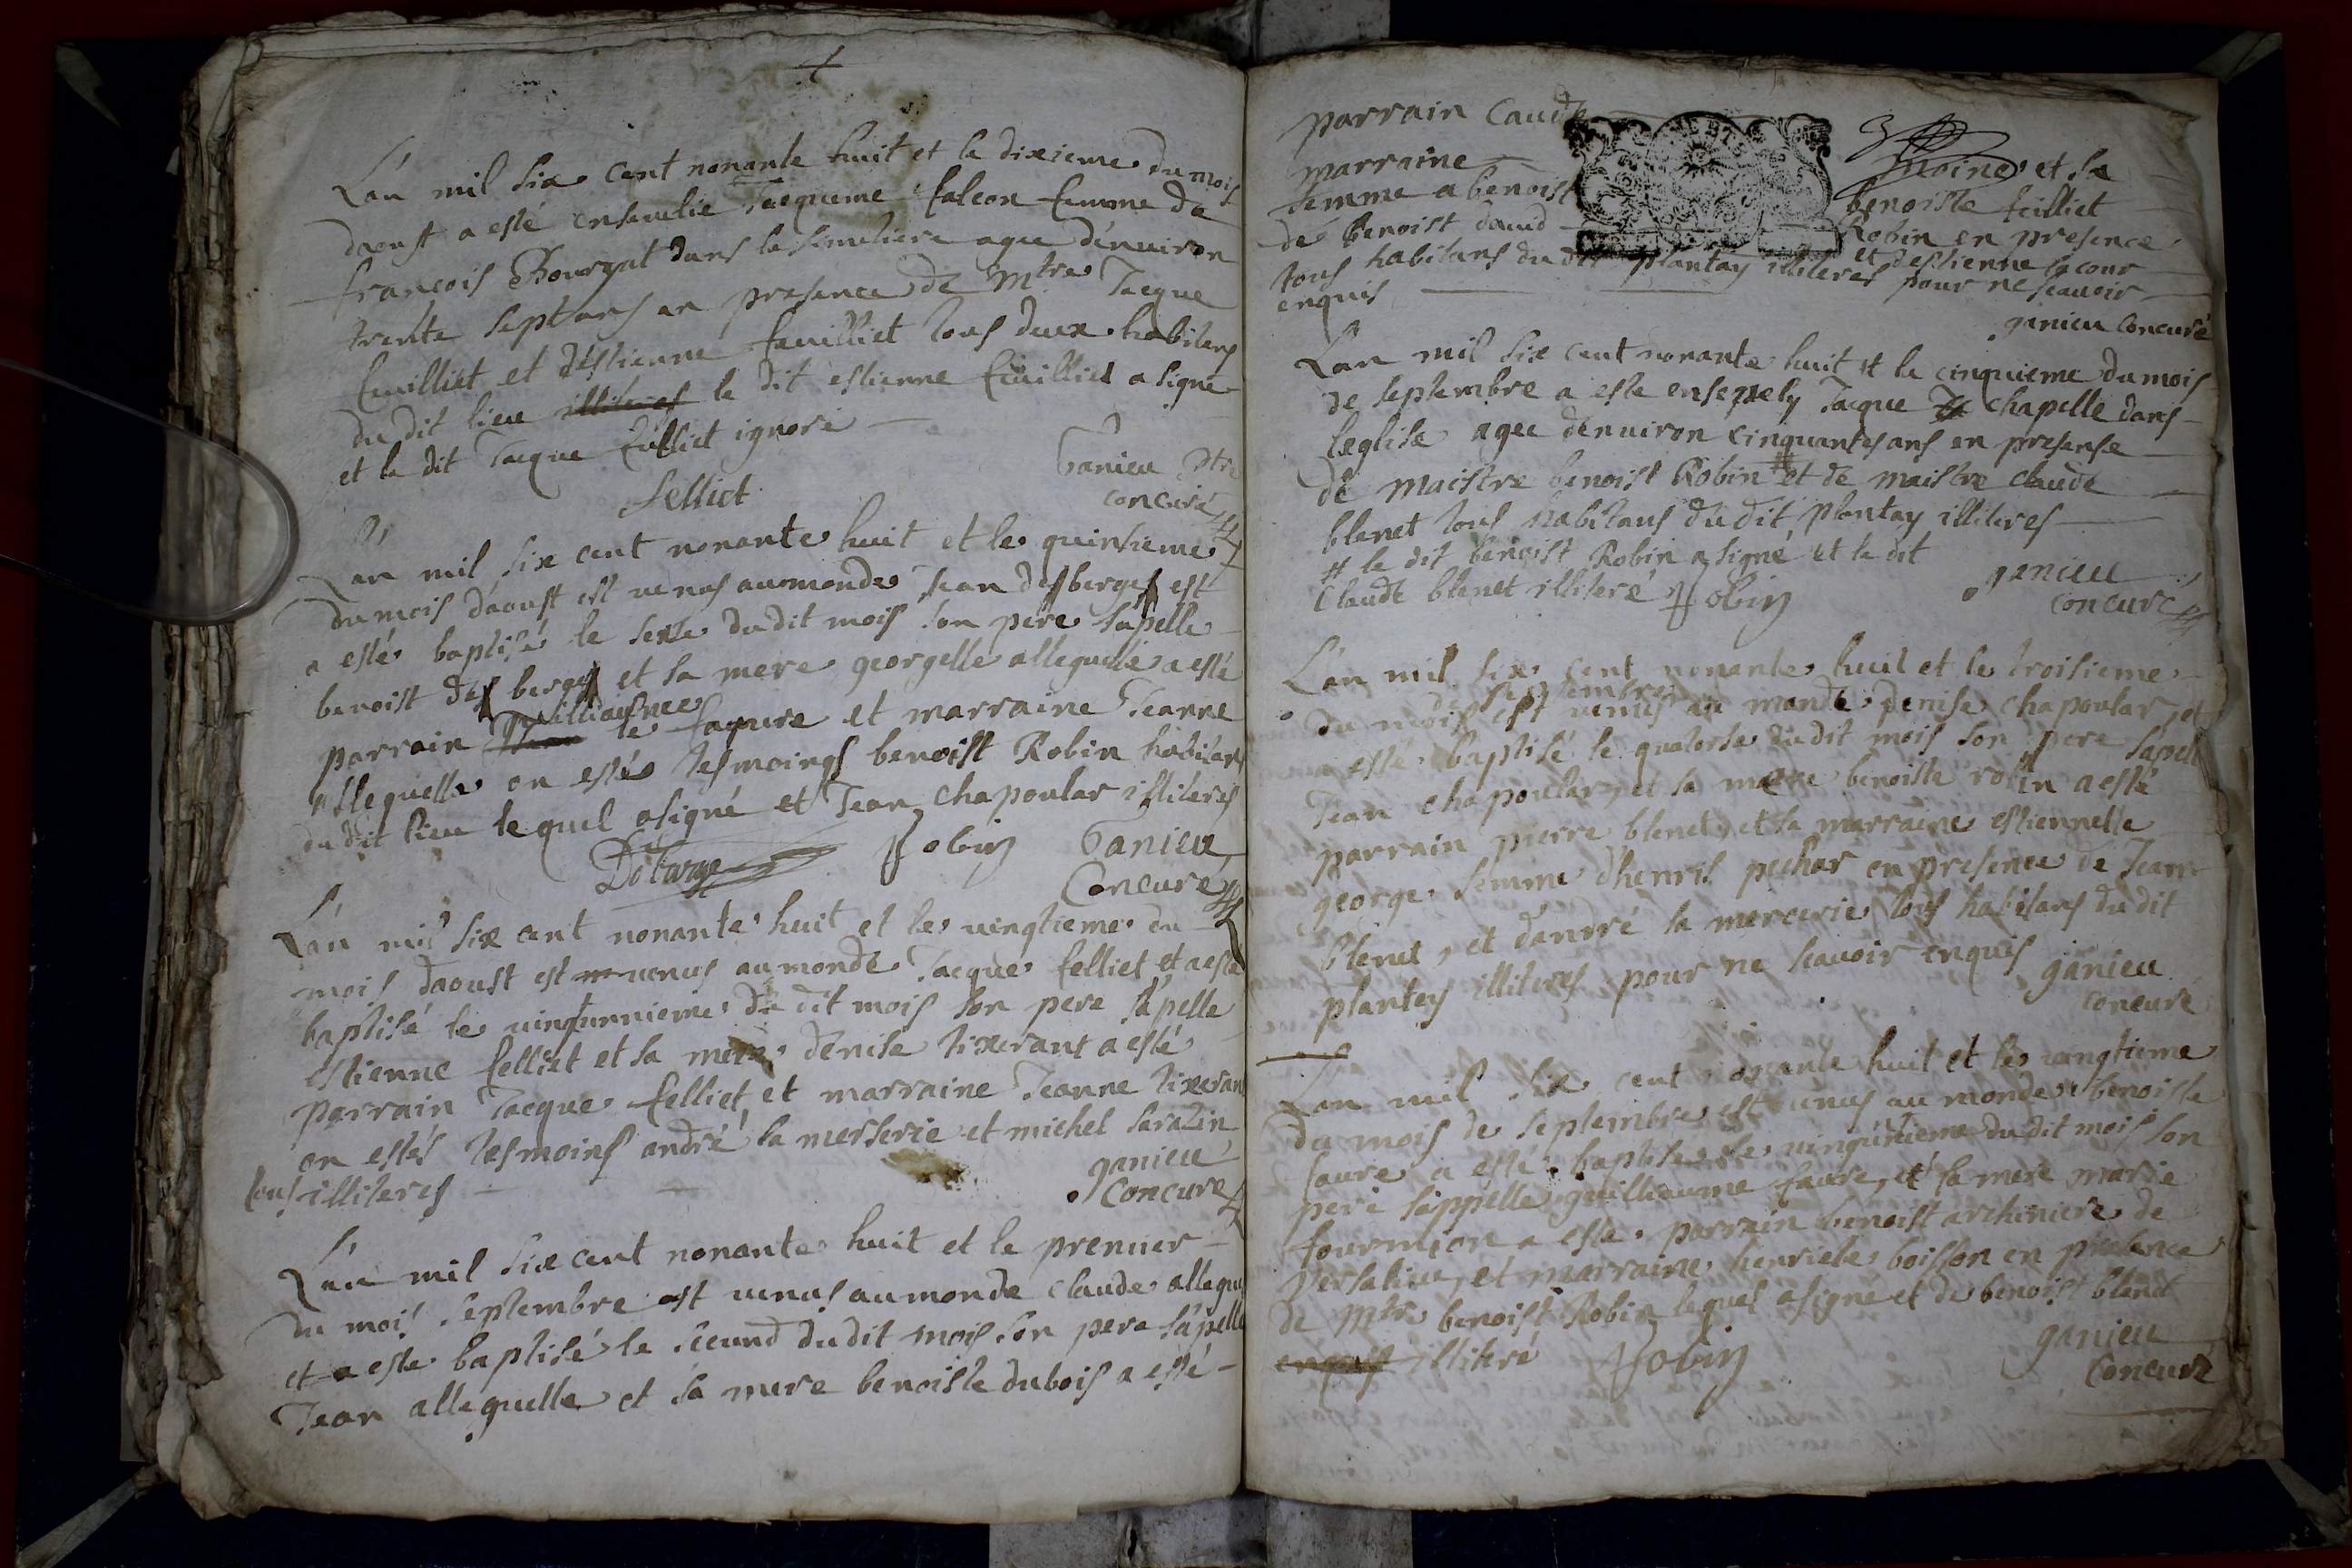 L'an mil six cent nonante huit et le dixieme du mois
daoust a esté ensevelie Jacqueme falcon femme de
françois Bourgat dans le simetiere agee d'enuiron
trente sept ans en presence de Mtre Jacque
feuilliet et d'estienne feuilliet tous deux habitans
du dit lieu illiteres le dit estienne feuilliet a signé
et le dit Jacque feilliet ignoré
felliet
Ganieu ptre
concuré
L'an mil six cent nonante huit et le quinsieme
du mois d'aoust est uenus au monde Jean desberges est
a esté baptisé le seze du dit mois son pere sapelle
benoist des berges et sa mere georgette allequelle a esté
parrain guilliaume le faqure et marraine Jeanne
allequelle on estés tesmoings benoist Robin habitans
du dit lieu lequel a signé et Jean chapoular illiteres
Robin Ganieu
Concuré
L'an mil six cent nonante huit et le uingtieme du
mois daoust est uenus au monde Jacque felliet et a esté
baptisé le uingtunnieme du dit mois son pere sapelle
estienne felliet et sa mere denise tixerant a esté
parrain Jacque felliet et marraine Jeanne tixeran
on estés tesmoins andré la merserie et michel sarazin
tous illiteres
ganieu
Concuré
L'an mil six cent nonante huit et le premier
du mois septembre est uenus au monde claude allequ
et a este baptisé le secund du dit mois son pere sapelle
Jean allequelle et sa mere benoiste dubois a esté
parrain Caude
marraine
femme a benoist
de benoist dauid
moine et sa
benoiste feilliet
Robin en presence
et destienne lacour
tous habitans du dit plantay illiteres pour ne scauoir
enquis
ganieu concuré
L'an mil six cent nonante huit et le cinquieme du mois
de septembre a este ensepuely Jacque chapelle dans
leglise agee denuiron cinquantes ans en presense
de maistre benoist Robin # et de maistre claude
blenet tous habitans du dit plantay illiteres
# le dit benoist Robin a signé et le dit
Claude blenet illiteré Robin
ganieu
concuré
L'an mil six cent nonante huit et le troisieme
de septembre
du mois est uenus au monde denise chapoular et
a esté baptisé le quatorse du dit mois son pere sapelle
Jean chapoular, et sa mere benoiste robin a esté
parrain pierre blenet, et la marraine estiennette
george femme dhenris pechar en presence de Jean
blenet, et d'andré la mercerie tous habitans du dit
plantay illiteres pour ne scauoir enquis
ganieu
concuré
L'an mil six cent nonante huit et le uingtieme
du mois de septembre est uenus au monde benoiste
faure a esté baptisé le uingunieme du dit mois son
pere sappelle guilliaume faure, et sa mere marie
fourmion a esté parrain benoist archiniere de
versalieu, et marraine henriete boisson en presence
de Mtre benoist Robin lequel a signé et de benoist blenet
enquis illiteré Robin
ganieu
Concuré